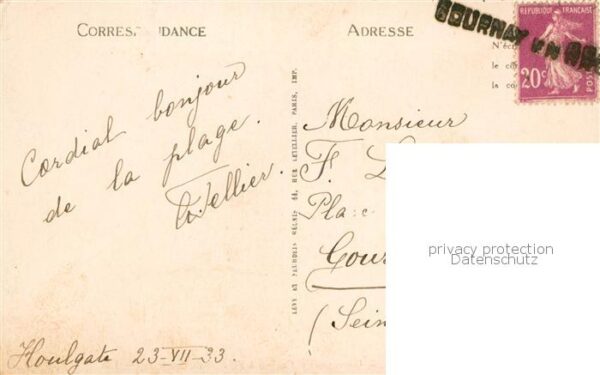 CORRES DANCE
Cordial bonjour
de la plage.
Tellier.
Houlgate 23-VII-33.
LEVY ET NEURDEIN RÉUNIS 44, RUE LETELLIER, PARIS, IMP.
ADRESSE
GOURNAY
REPUBLIQUE FRANÇAISE
20c
POSTES
N'éc
le co
la co
Monsieur
F.
Place
Gour
(Sein
privacy protection
Datenschutz